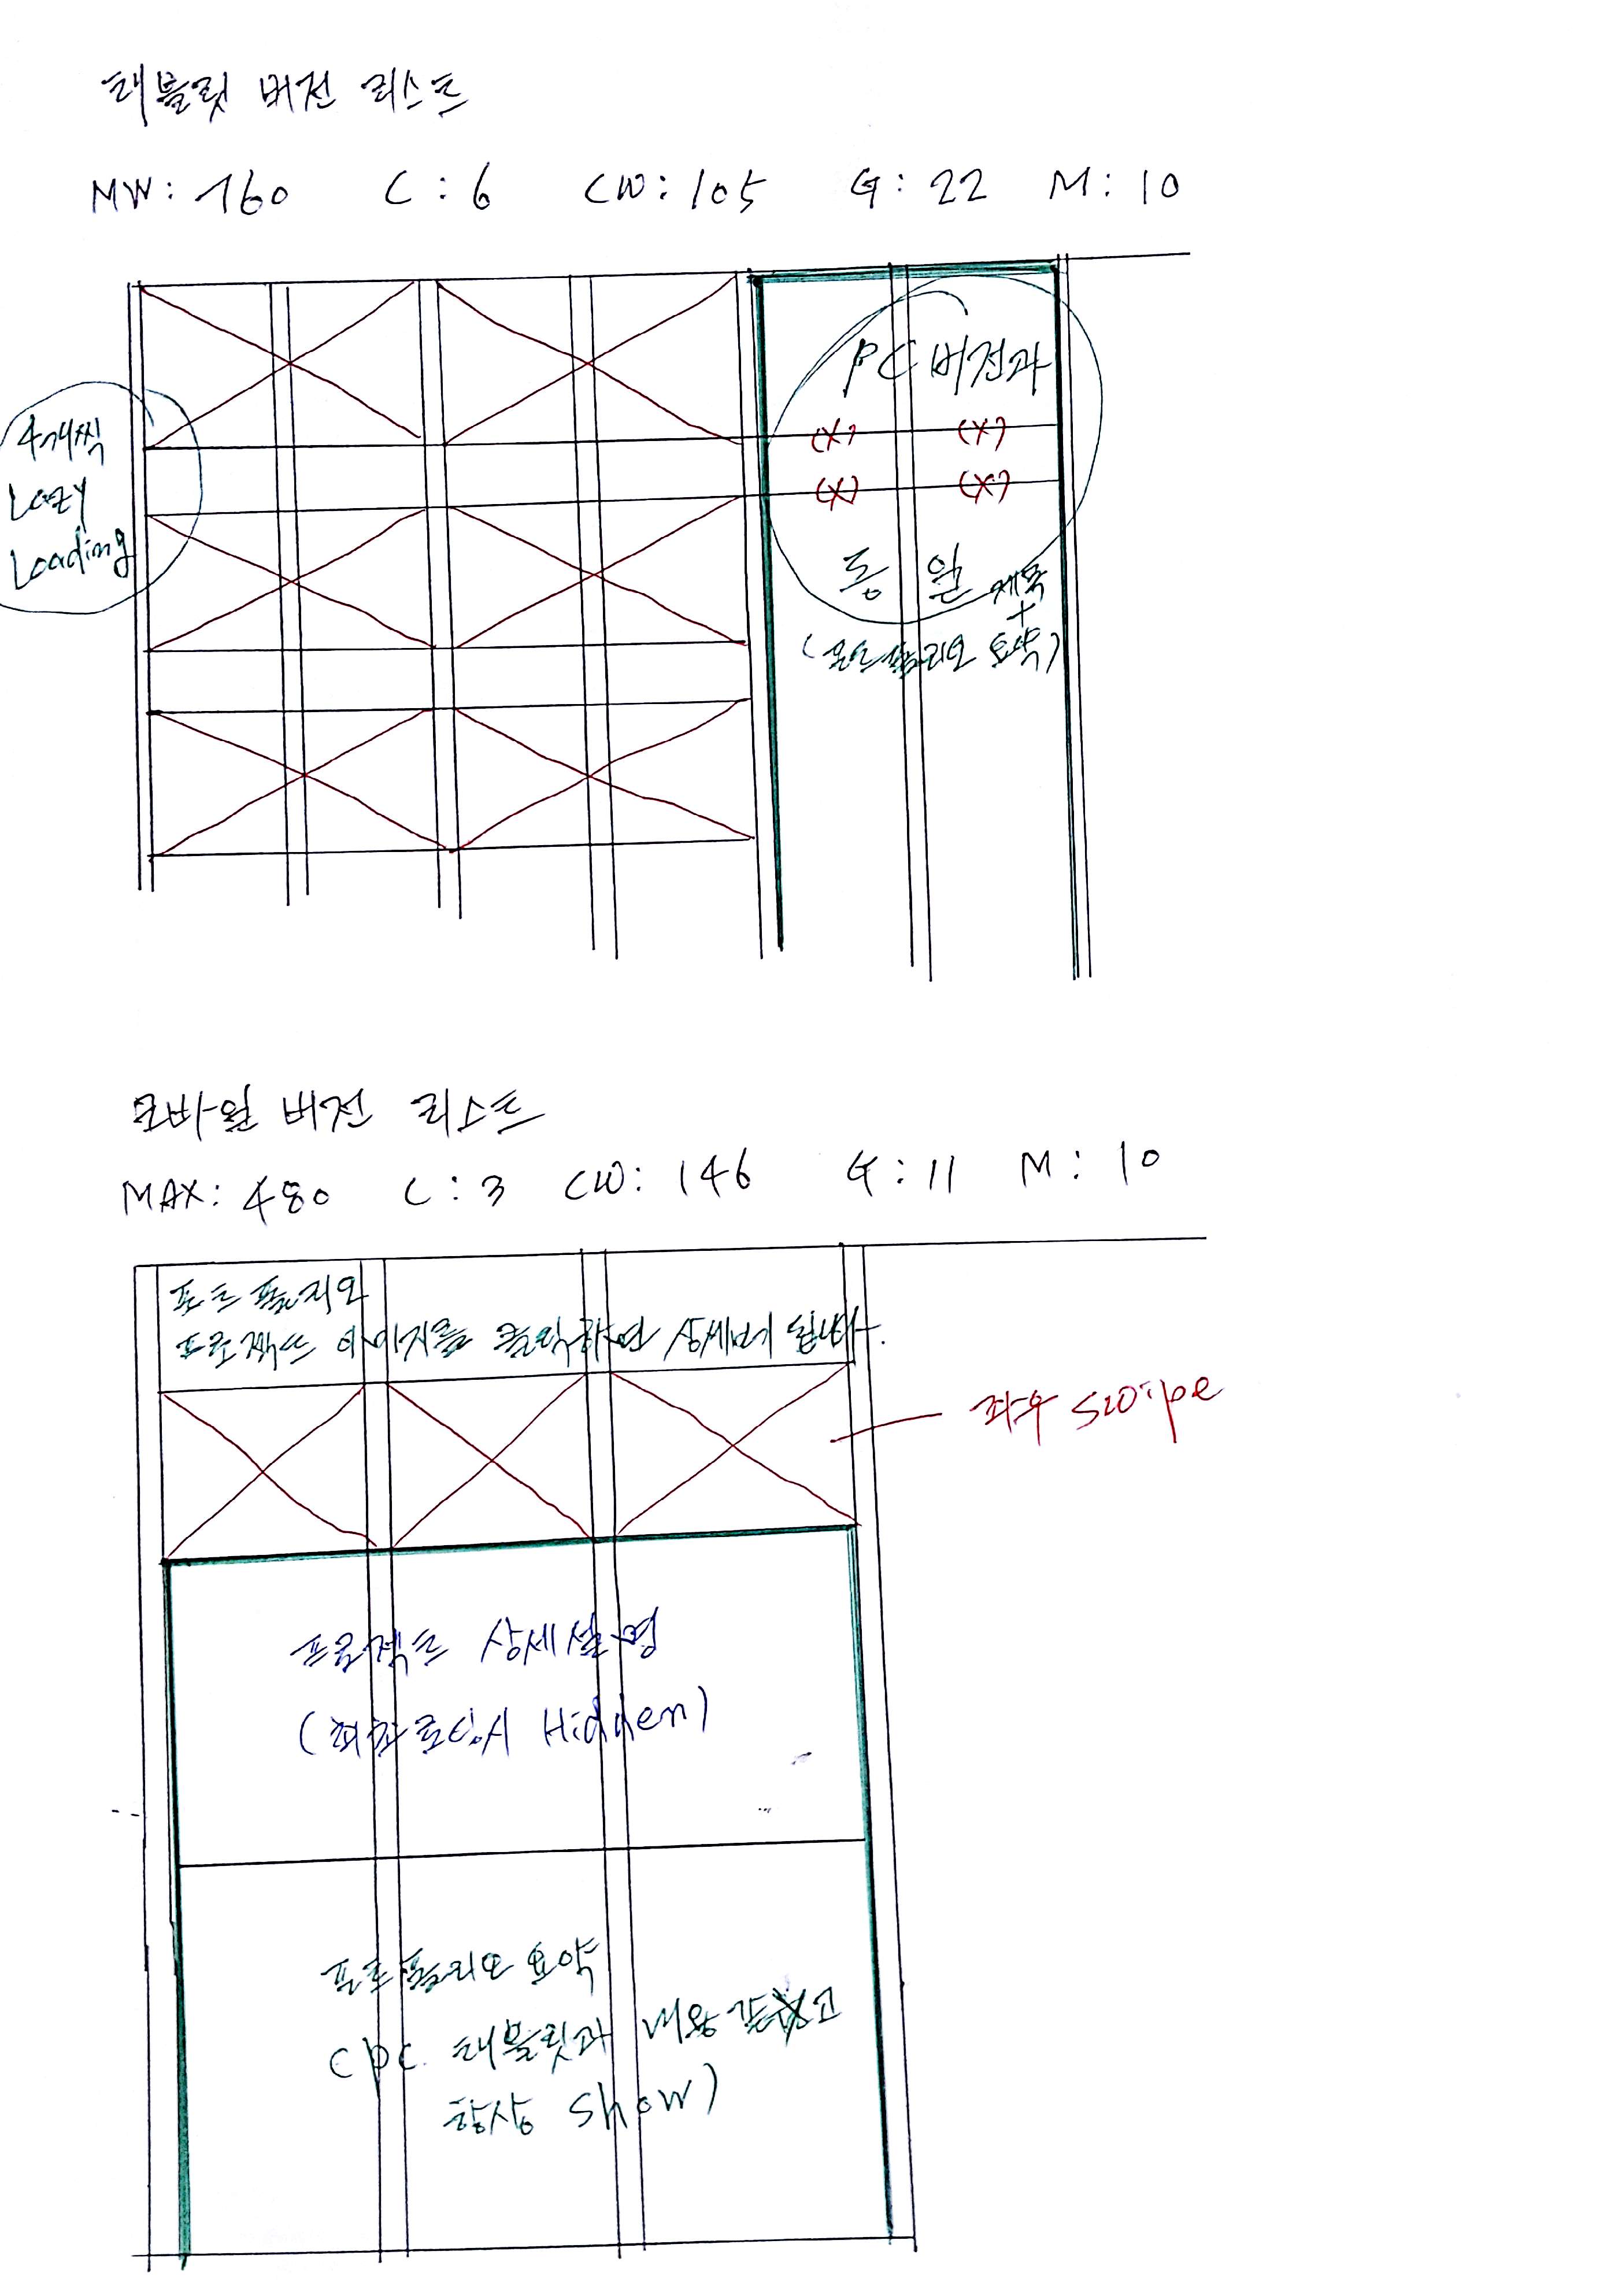 태블릿 버전 리스트
MW: 760 C: 6 CW: 105 G: 22 M: 10
PC 버전과
(X) (X)
4개씩
Lazy
Loading
(X) (X)
동일 제목
+
(포트폴리오 요약)
모바일 버전 리스트
MAX: 480 C: 3 CW: 146 G: 11 M: 10
포트폴리오
프로젝트 이미지를 클릭하면 상세보기 됩니다.
좌우 swipe
프로젝트 상세설명
(최초로딩시 Hidden)
포트폴리오 요약
(PC. 태블릿과 내용 같고
항상 show)